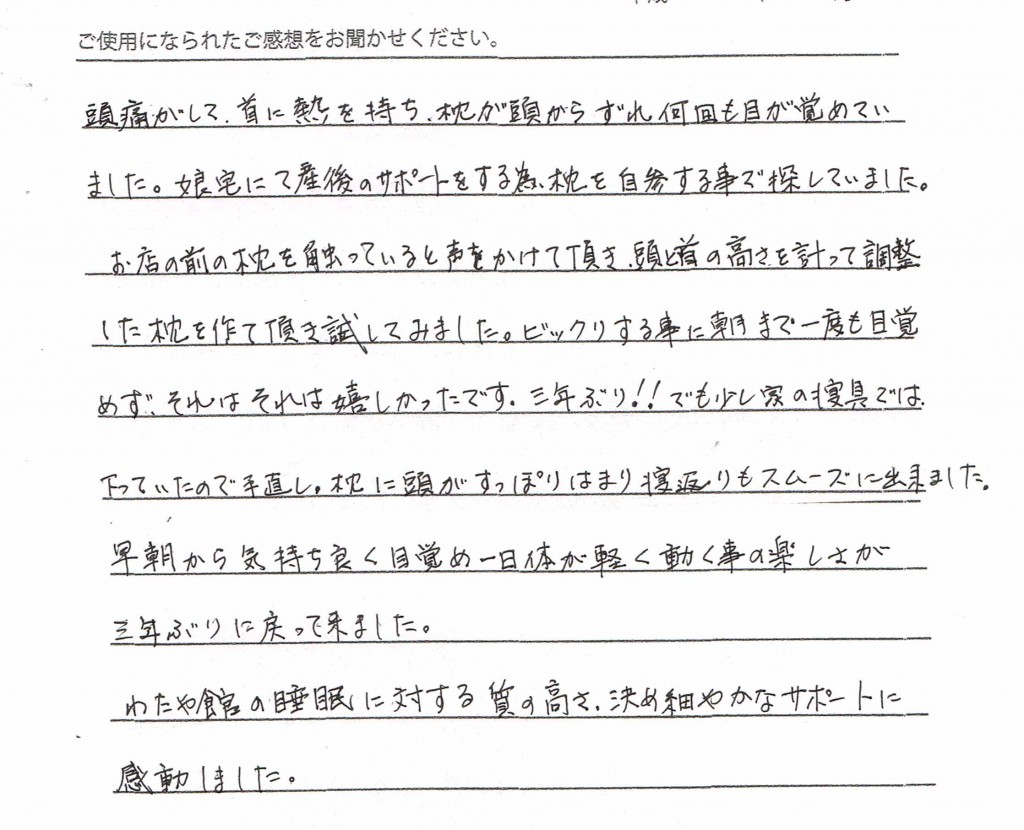 ご使用になられたご感想をお聞かせください。
頭痛がして、首に熱を持ち、枕が頭からずれ何回も目が覚めてい
ました。娘宅にて産後のサポートをする為、枕を自参する事で探していました。
お店の前の枕を触っていると声をかけて頂き、頭と首の高さを計って調整
した枕を作て頂き試してみました。ビックリする事に朝まで一度も目覚
めず、それはそれは嬉しかったです。三年ぶり!!でも少し家の寝具では
下っていたので手直し。枕に頭がすっぽりはまり寝返りもスムーズに出来ました。
早朝から気持ち良く目覚め一日体が軽く動く事の楽しさが
三年ぶりに戻って来ました。
わたや館の睡眠に対する質の高さ、決め細やかなサポートに
感動しました。